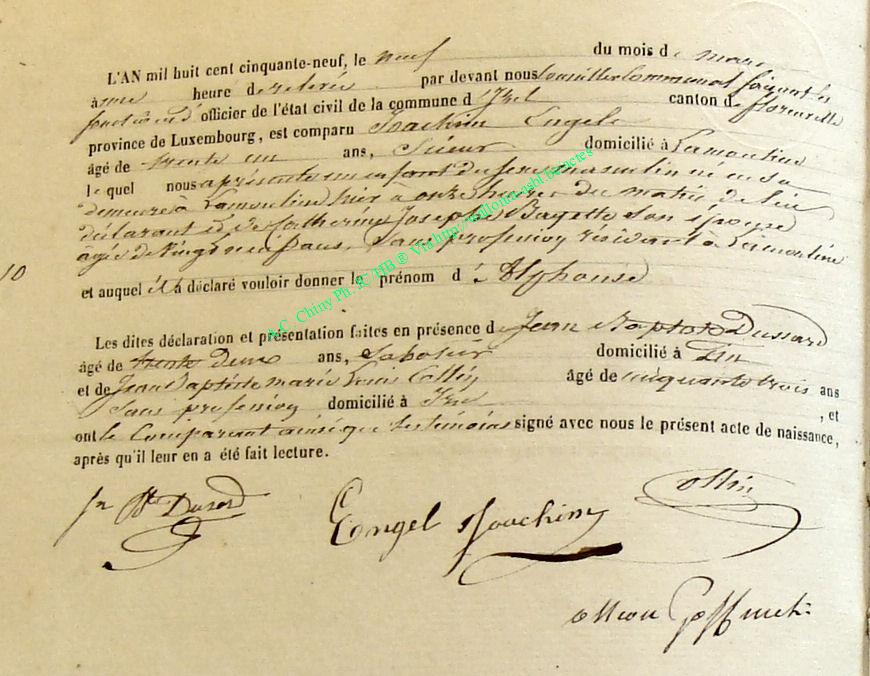 L'AN mil huit cent cinquante-neuf, le neuf du mois de mars
à une heure de relevée par devant nous Conseiller Communal faisant les
fonctions d'officier de l'état civil de la commune d'Izel canton de florenville
province de Luxembourg, est comparu Joachim Engel
âgé de trente un ans, Scieur domicilié à
le quel nous a présenté un enfant du sexe masculin né en sa
demeure à hier à onze heures du matin, de lui
déclarant et de Catherine Josephe son épouse
agée de vingt neuf ans, sans profession résidant à
10
et auquel il a déclaré vouloir donner le prénom d'Alphonse
Les dites déclaration et présentation faites en présence de Jean Baptiste Dussard
âgé de trente deux ans, Sabotier domicilié à
et de Jean Baptiste marie Louis Ottin âgé de cinquante trois ans
Sans profession, domicilié à Izel, et
ont le Comparant ainsi que les témoins signé avec nous le présent acte de naissance,
après qu'il leur en a été fait lecture.
Jn Bte Dusard
Engel Joachim
Ottin
Goffinet
A.C. Chiny Ph. JC HB ® Via http://wallonia-asbl.be/actes